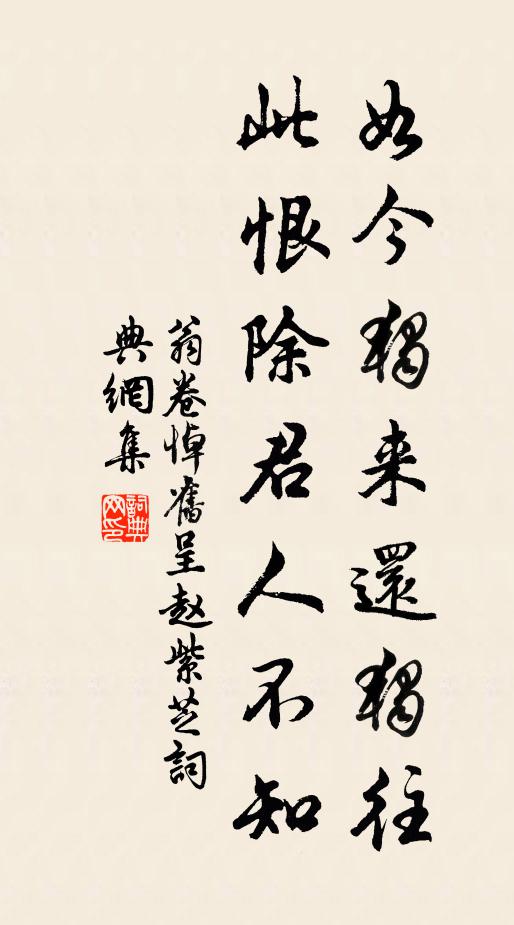 如今獨来還獨往
此恨除君人不知
翁卷悼舊呈赵紫芝詞
典網集
詞典网印